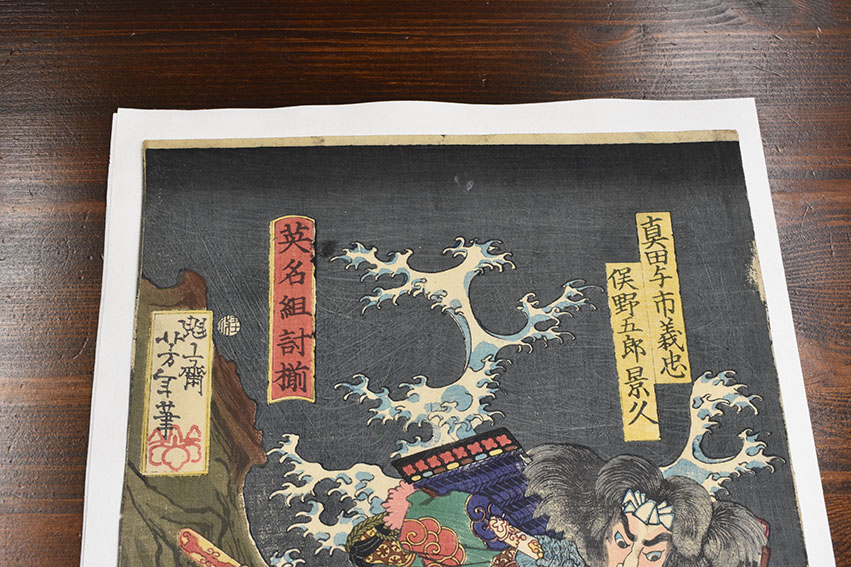 真田与市義忠
俣野五郎景久
英名組討揃
魁斎芳年筆